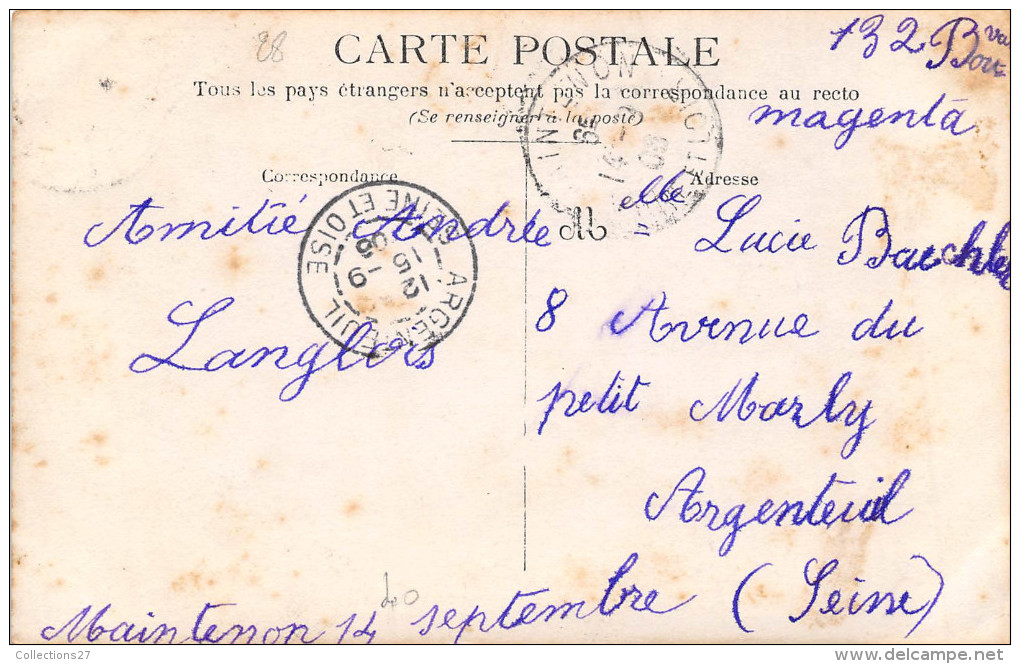 28
132 Bva
CARTE POSTALE
Tous les pays étrangers n'acceptent pas la correspondance au recto
(Se renseigner à la poste)
magenta
Correspondance
Adresse
Amitié Andrée
Langlois
Melle Lucie Baechler
8 Avenue du
petit Marly
Argenteuil
(Seine)
Maintenon 14 septembre
40
ARGENTEUIL
SEINE ET OISE
12
15 -9
08
MAINTENON
Collections27
delcampe.net